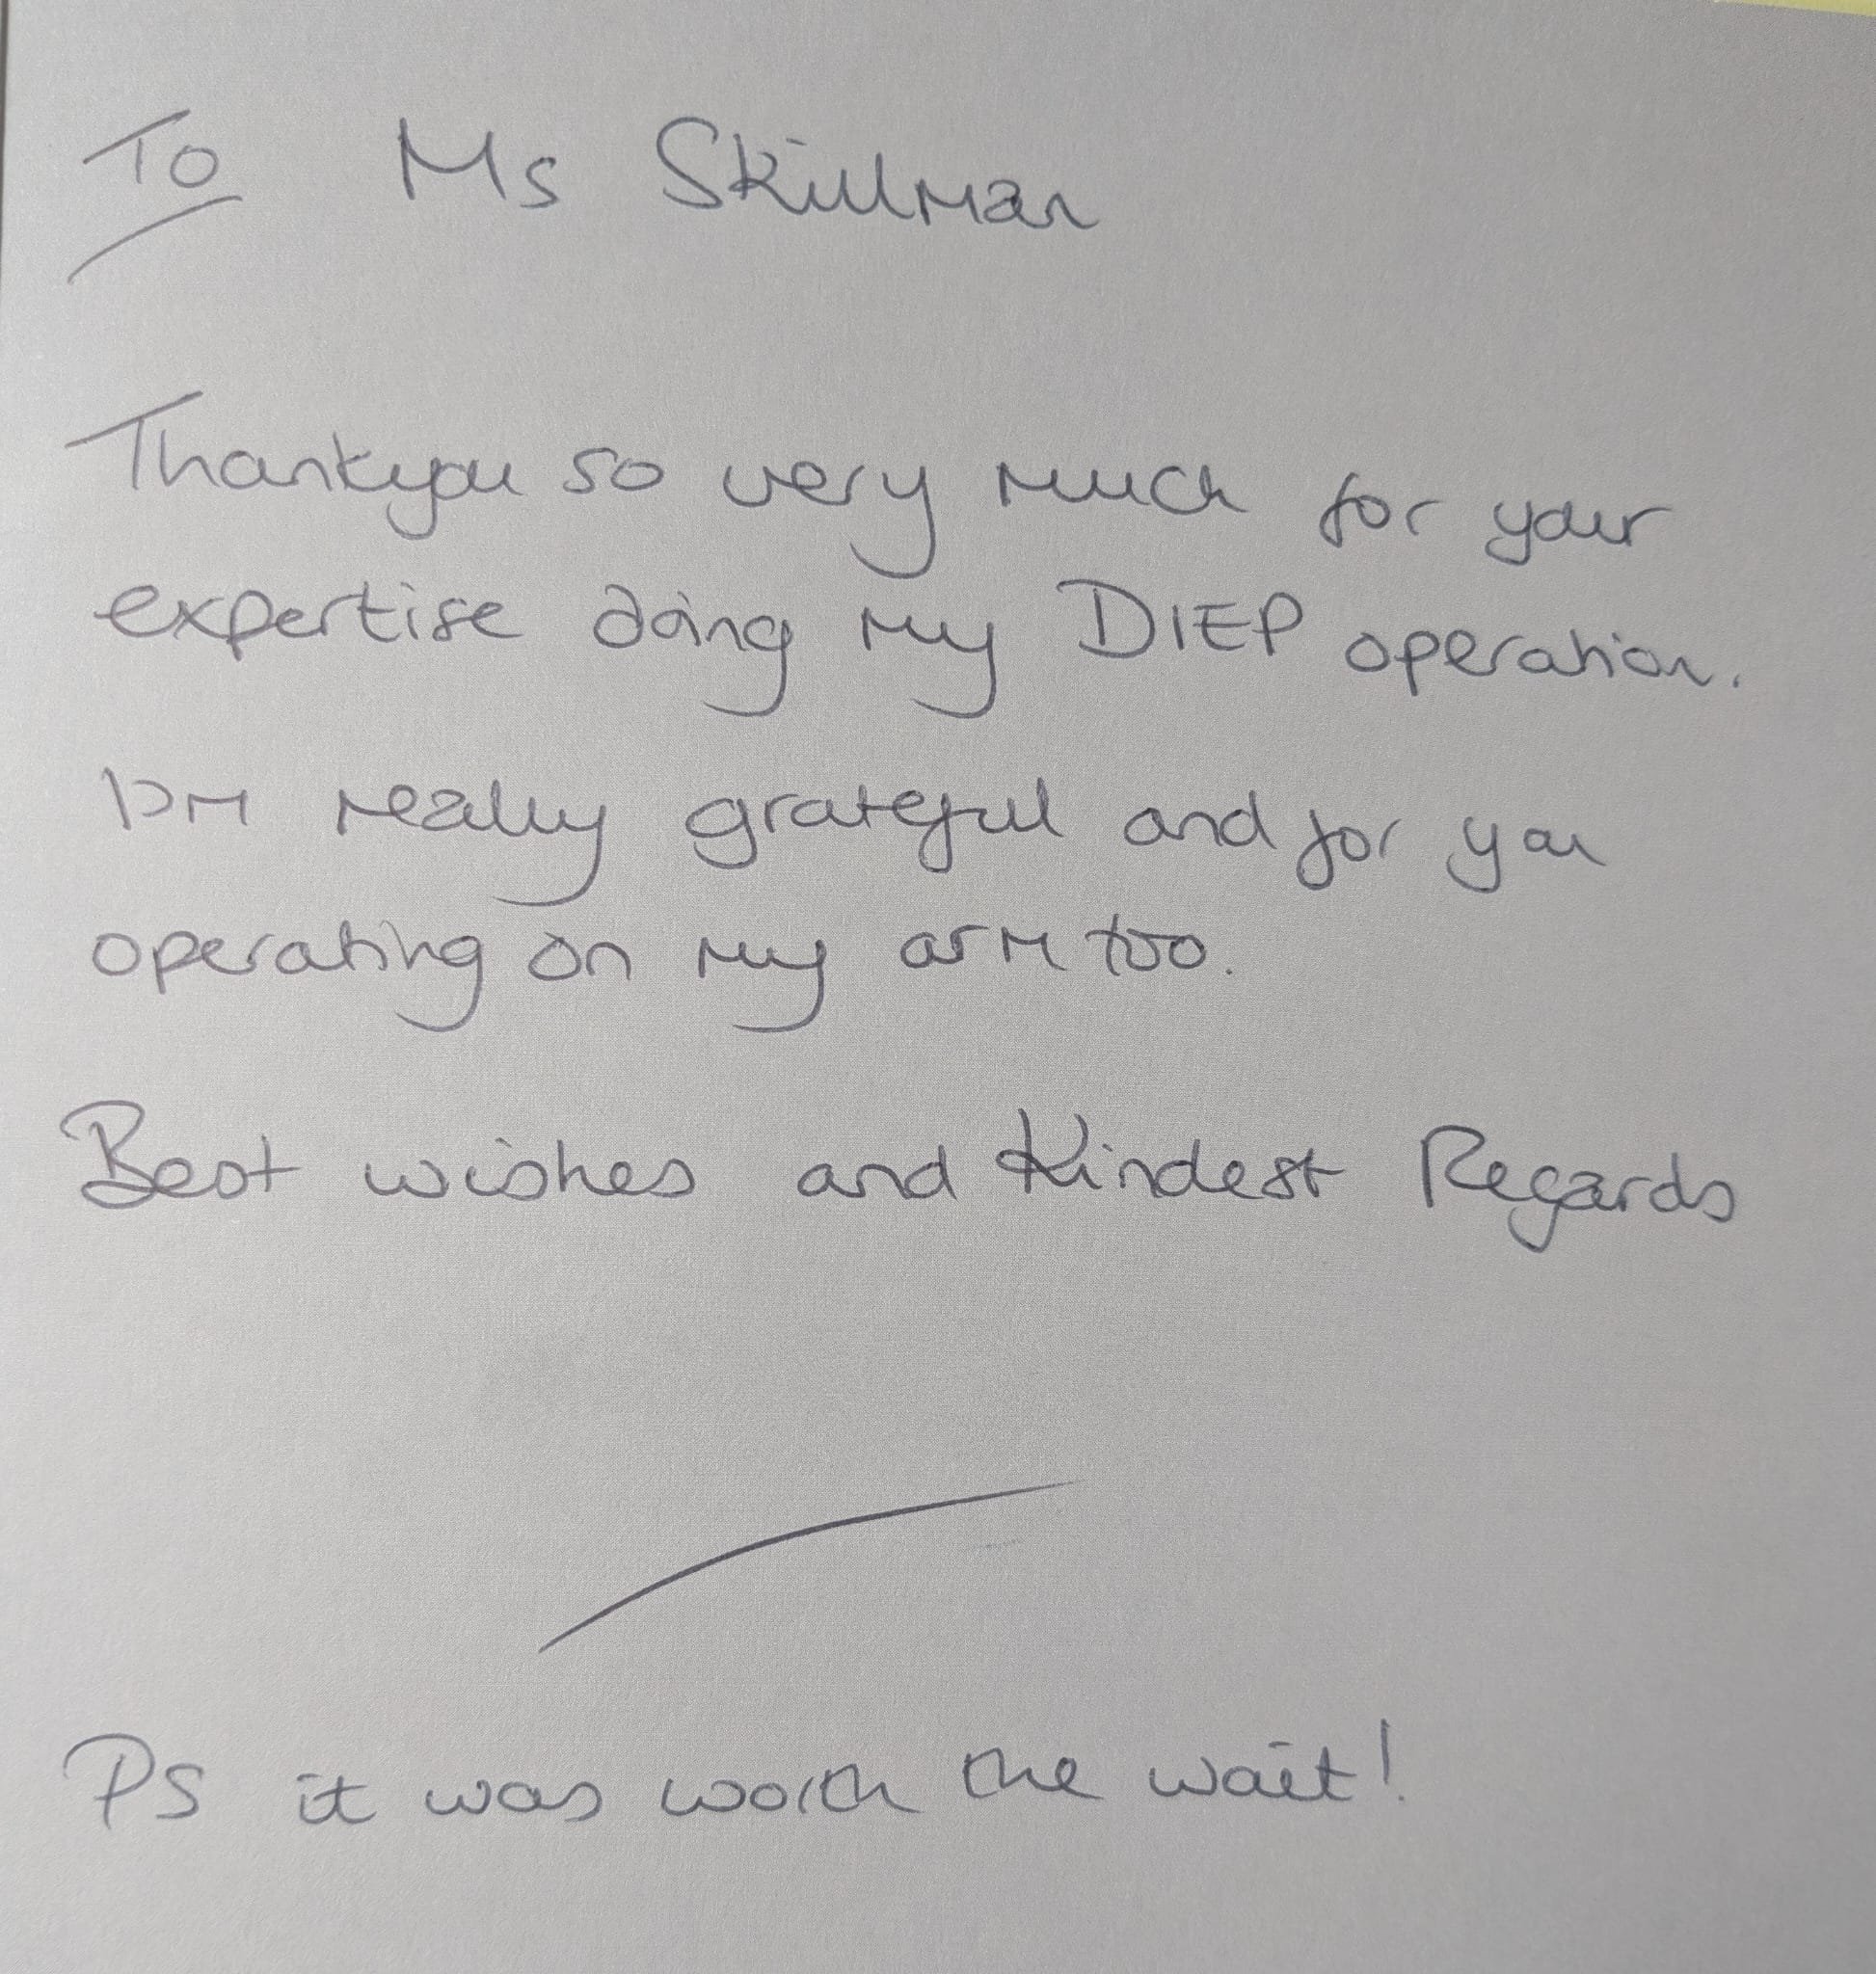 To Ms Skillman
Thankyou so very much for your
expertise doing my DIEP operation.
I'm really grateful and for you
operating on my arm too.
Best wishes and Kindest Regards
PS it was worth the wait!